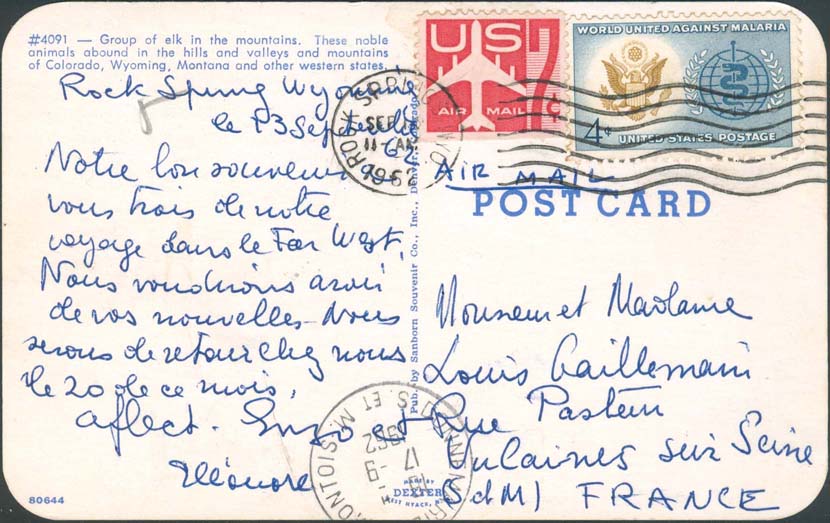 #4091 — Group of elk in the mountains. These noble
animals abound in the hills and valleys and mountains
of Colorado, Wyoming, Montana and other western states.
Rock Spring Wyoming
le 13 Septembre
62
Notre bon souvenir
vous trois de notre
voyage dans le Far West.
Nous voudrions avoir
de vos nouvelles. Nous
serons de retour chez nous
le 20 de ce mois.
affect. Enzo et
Eléonore
80644
Pub. by Sanborn Souvenir Co., Inc., Denver, Colorado
MADE BY
DEXTER
WEST NYACK, N.Y.
US
7¢
AIR MAIL
WORLD UNITED AGAINST MALARIA
4¢
UNITED STATES POSTAGE
ROCK SPRINGS
SEP
11 AM
1962
AIR MAIL
POST CARD
Monsieur et Madame
Louis Caillemain
Rue Pasteur
Vulaines sur Seine
(S d M) FRANCE
17 -9
1962
S. ET M.